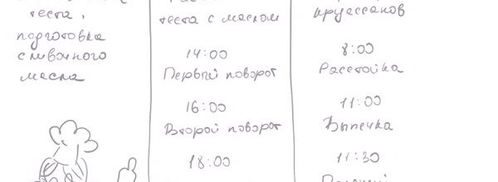 теста,
подготовка
сливочного
масла
теста с маслом
14:00
Первый поворот
16:00
Второй поворот
18:00
круассанов
8:00
Расстойка
11:00
Выпечка
11:30